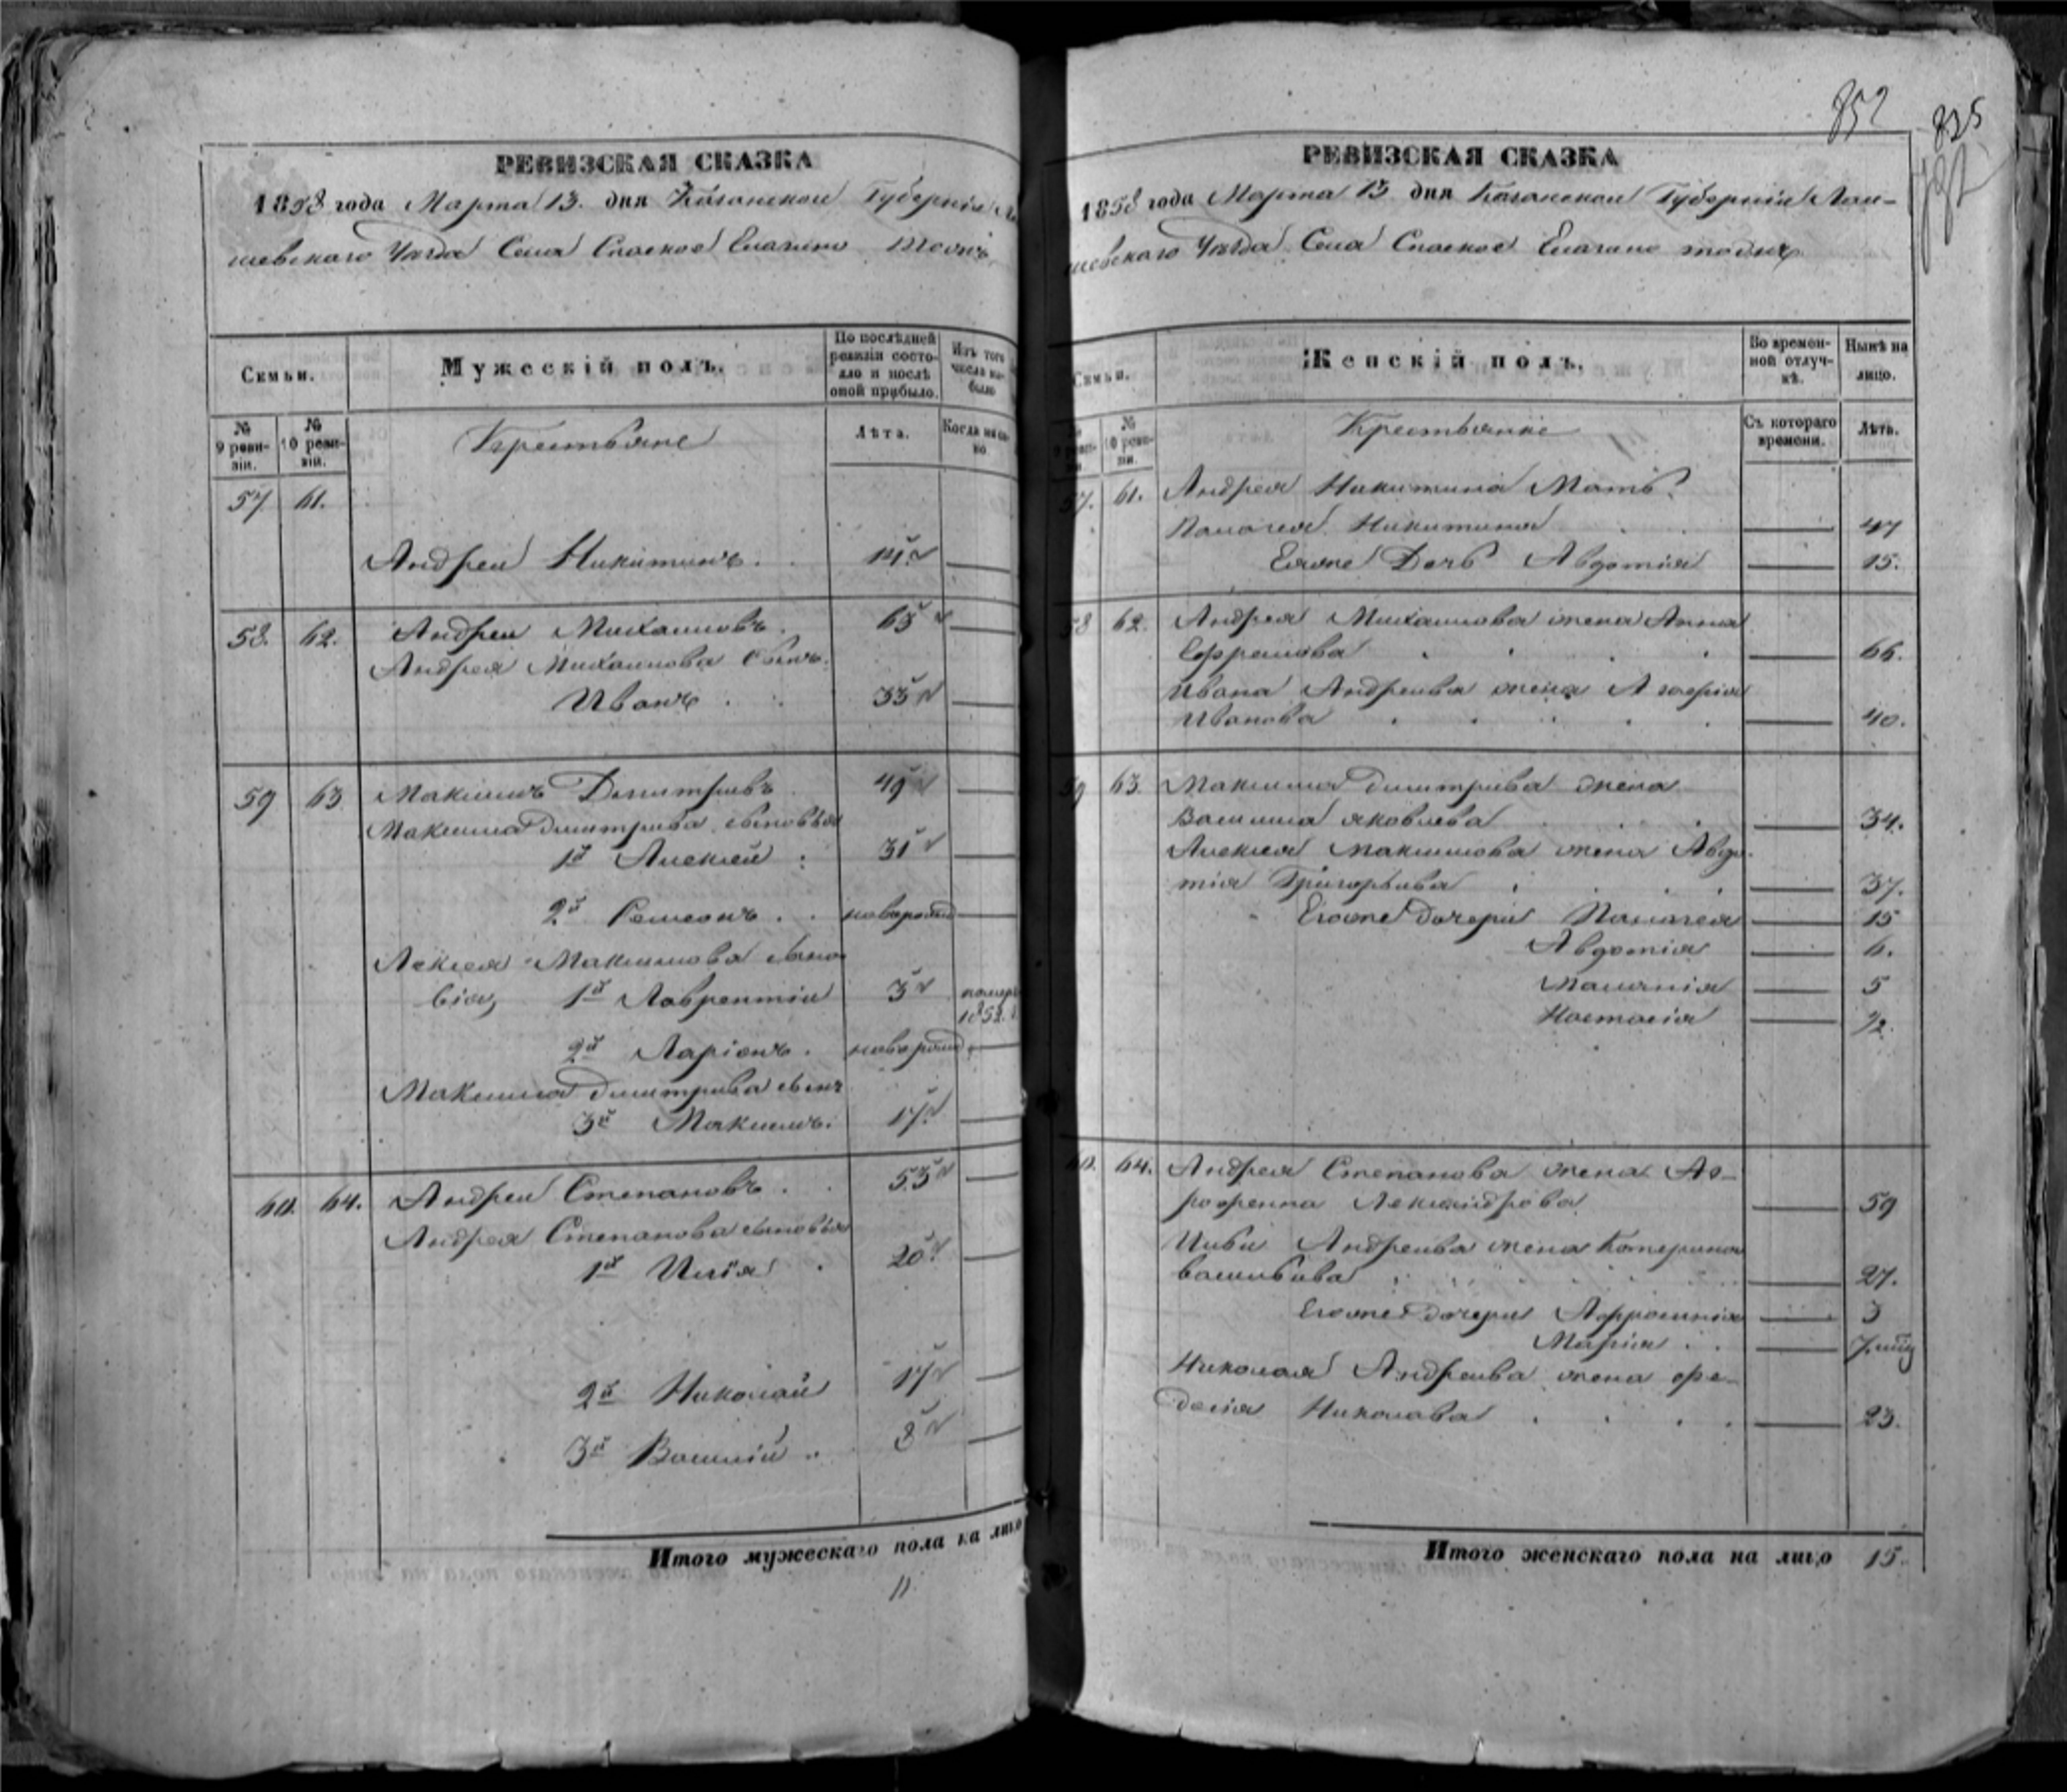 РЕВИЗСКАЯ СКАЗКА
1858 года Марта 13. дня Казанской Губерніи
шевскаго Уѣзда Села Спаское Елагино тожъ
Семьи.
Мужескій полъ.
По послѣдней ревизіи состояло и послѣ оной прибыло.
Изъ того числа выбыло
№ 9 ревизіи.
№ 10 ревизіи.
Крестьяне
Лѣта.
Когда именно
57 61.
Андрей Никитинъ . . 14.
58. 62. Андрей Михаиловъ . 65
Андрея Михаилова сынъ.
Иванъ . . 33
59 63 Максимъ Дмитріевъ 49
Максима Дмитріева сыновья
1й Алексей : 31
2й Семенъ . . новорожд
Алексея Максимова сыно
вья, 1й Лаврентіи 3 померъ 1852.
2й Ларіонъ . новорожд.
Максима Дмитріева сынъ
3й Максимъ. 17.
60. 64. Андрей Степановъ . . 53
Андрея Степанова сыновья
1й Илія . 20
2й Николай 17
3й Василій . 8
Итого мужескаго пола на лицо
11
852
835
РЕВИЗСКАЯ СКАЗКА
1858 года Марта 13 дня Казанской Губерніи Лаи-
шевскаго Уѣзда Села Спаское Елагино тожъ
Семьи.
Женскій полъ.
Во временной отлучкѣ.
Нынѣ на лицо.
№ 9 ревизіи
№ 10 ревизіи.
Крестьянке
Съ котораго времени.
Лѣта.
57. 61. Андрея Никитина Мать.
Палагея Никитина 47
Еяоже Дочь Авдотія 15.
58 62. Андрея Михаилова жена Анна
Ефремова . . . . 66.
Ивана Андреива жена
Иванова . . . . . 40.
59 63. Максима Дмитріева жена
Василиса Яковлева . . . 34.
Алексея Максимова жена Авдо-
тія Григорьива . . . . 37.
Егоже Дочери Палагея 15
Авдотія 6.
Маланія 5
Настасія 1/2.
60. 64. Андрея Степанова жена Аг-
рофенна Лександрова 59
Ильи Андреива жена Катерина
Васильива . . . . 27.
Егоже Дочери Афросинія 3
Марія . .
Николая Андреива жена фе-
досія Николава . . . . 23.
Итого женскаго пола на лицо 15.